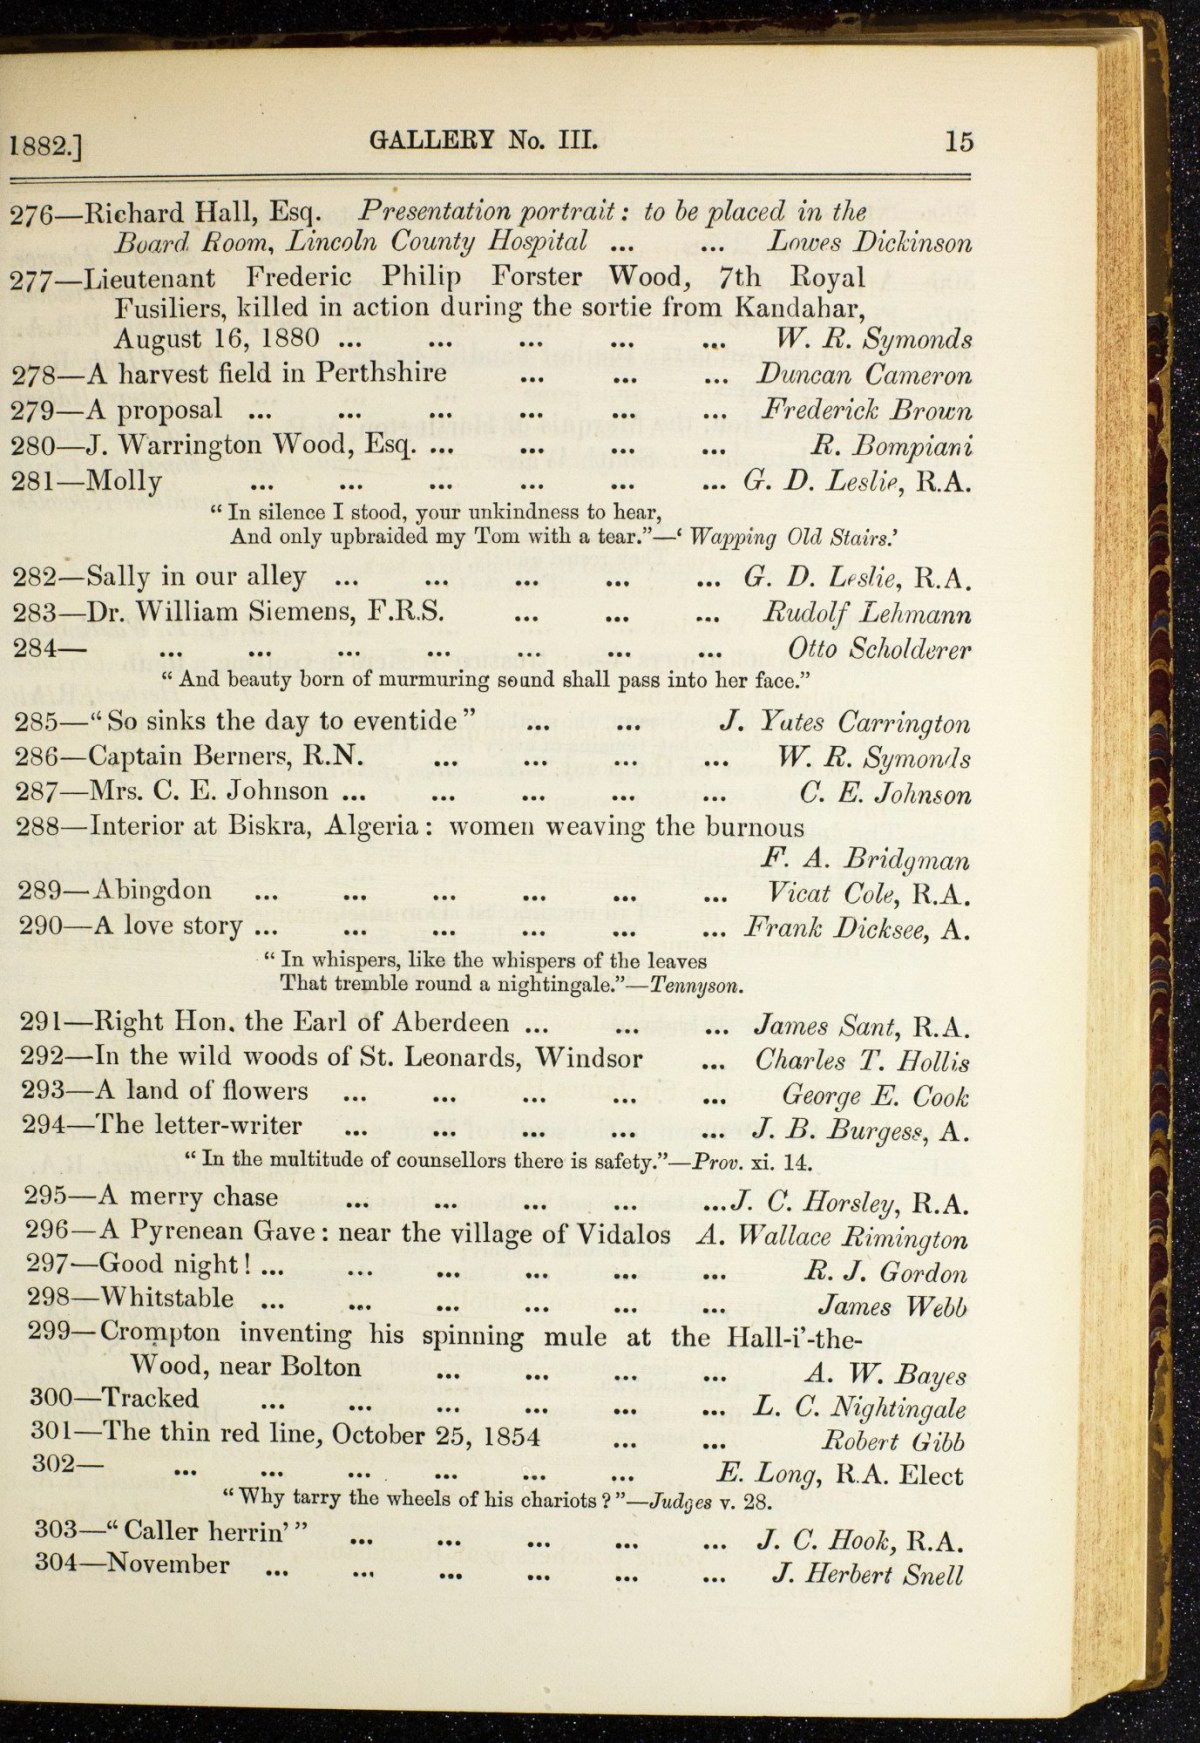 1882.] GALLERY No. III. 15
276—Richard Hall, Esq. Presentation portrait: to be placed in the
Board Room, Lincoln County Hospital ... ... Lowes Dickinson
277—Lieutenant Frederic Philip Forster Wood, 7th Royal
Fusiliers, killed in action during the sortie from Kandahar,
August 16, 1880 ... ... ... ... ... W. R. Symonds
278—A harvest field in Perthshire ... ... ... Duncan Cameron
279—A proposal ... ... ... ... ... ... Frederick Brown
280—J. Warrington Wood, Esq. ... ... ... ... R. Bompiani
281—Molly ... ... ... ... ... ... G. D. Leslie, R.A.
“In silence I stood, your unkindness to hear,
And only upbraided my Tom with a tear.”—‘Wapping Old Stairs.’
282—Sally in our alley ... ... ... ... ... G. D. Leslie, R.A.
283—Dr. William Siemens, F.R.S. ... ... ... Rudolf Lehmann
284— ... ... ... ... ... ... ... Otto Scholderer
“And beauty born of murmuring sound shall pass into her face.”
285—“So sinks the day to eventide” ... ... J. Yates Carrington
286—Captain Berners, R.N. ... ... ... ... W. R. Symonds
287—Mrs. C. E. Johnson ... ... ... ... ... C. E. Johnson
288—Interior at Biskra, Algeria: women weaving the burnous
F. A. Bridgman
289—Abingdon ... ... ... ... ... ... Vicat Cole, R.A.
290—A love story ... ... ... ... ... ... Frank Dicksee, A.
“In whispers, like the whispers of the leaves
That tremble round a nightingale.”—Tennyson.
291—Right Hon. the Earl of Aberdeen ... ... ... James Sant, R.A.
292—In the wild woods of St. Leonards, Windsor ... Charles T. Hollis
293—A land of flowers ... ... ... ... ... George E. Cook
294—The letter-writer ... ... ... ... ... J. B. Burgess, A.
“In the multitude of counsellors there is safety.”—Prov. xi. 14.
295—A merry chase ... ... ... ... ...J. C. Horsley, R.A.
296—A Pyrenean Gave: near the village of Vidalos A. Wallace Rimington
297—Good night! ... ... ... ... ... ... R. J. Gordon
298—Whitstable ... ... ... ... ... ... James Webb
299—Crompton inventing his spinning mule at the Hall-i’-the-
Wood, near Bolton ... ... ... ... A. W. Bayes
300—Tracked ... ... ... ... ... ... L. C. Nightingale
301—The thin red line, October 25, 1854 ... ... Robert Gibb
302— ... ... ... ... ... ... E. Long, R.A. Elect
“Why tarry the wheels of his chariots?”—Judges v. 28.
303—“Caller herrin’” ... ... ... ... ... J. C. Hook, R.A.
304—November ... ... ... ... ... ... J. Herbert Snell